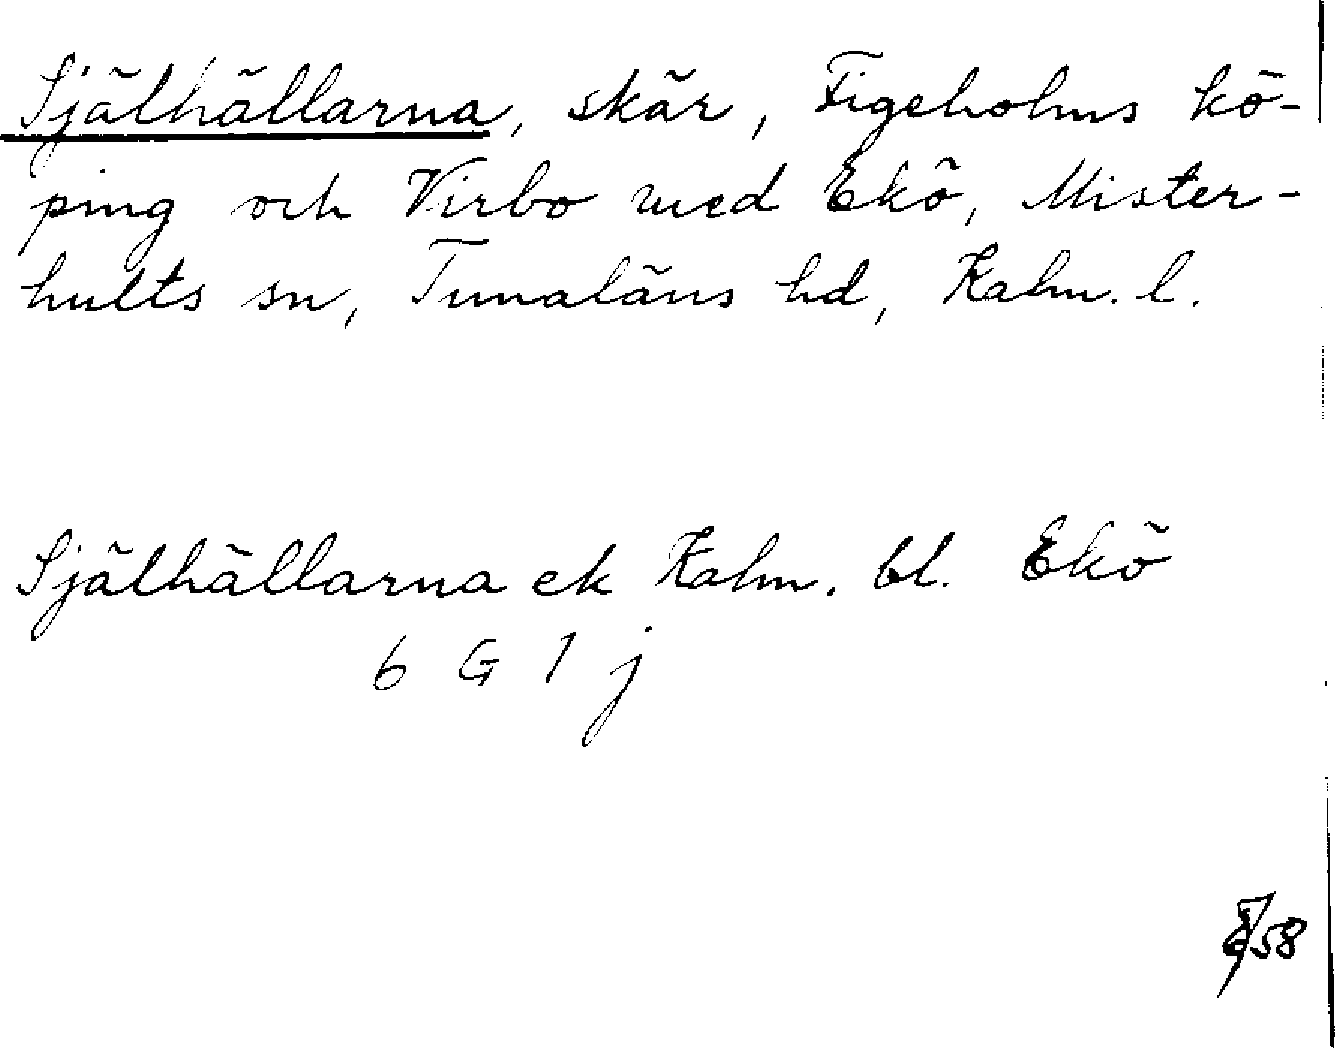 Själhällarna, skär, Figeholms kö-
ping och Virbo med Ekö, Mister-
hults sn, Tunaläns hd, Kalm. l.
Själhällarna ek Kalm. bl. Ekö
6 G 1 j
58